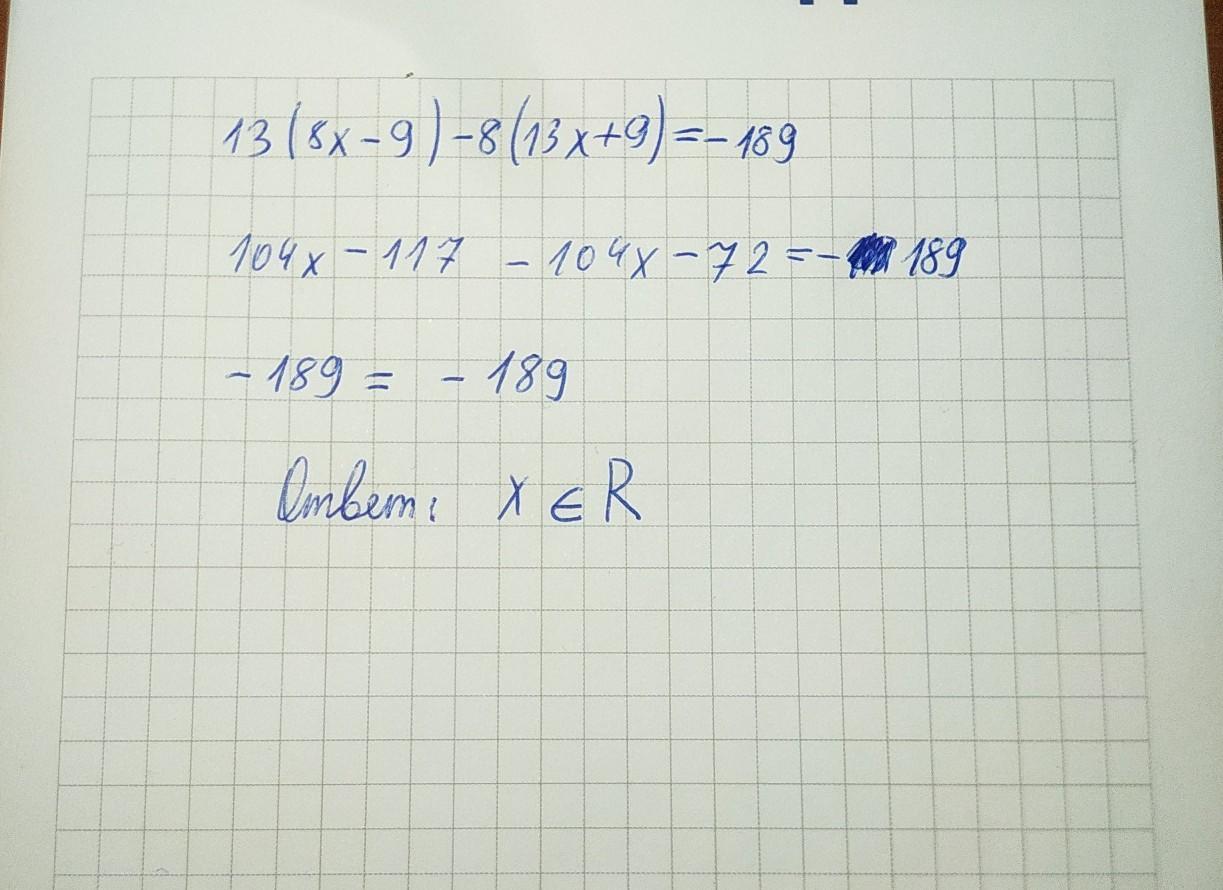 13(8x-9)-8(13x+9)=-189
104x-117 -104x-72=- 189
-189= -189
Ответ: x∈R